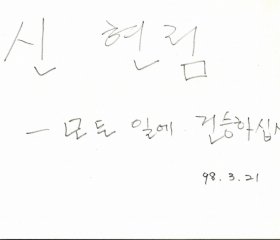 신 현 림
- 모든 일에 건승하십시
98. 3. 21